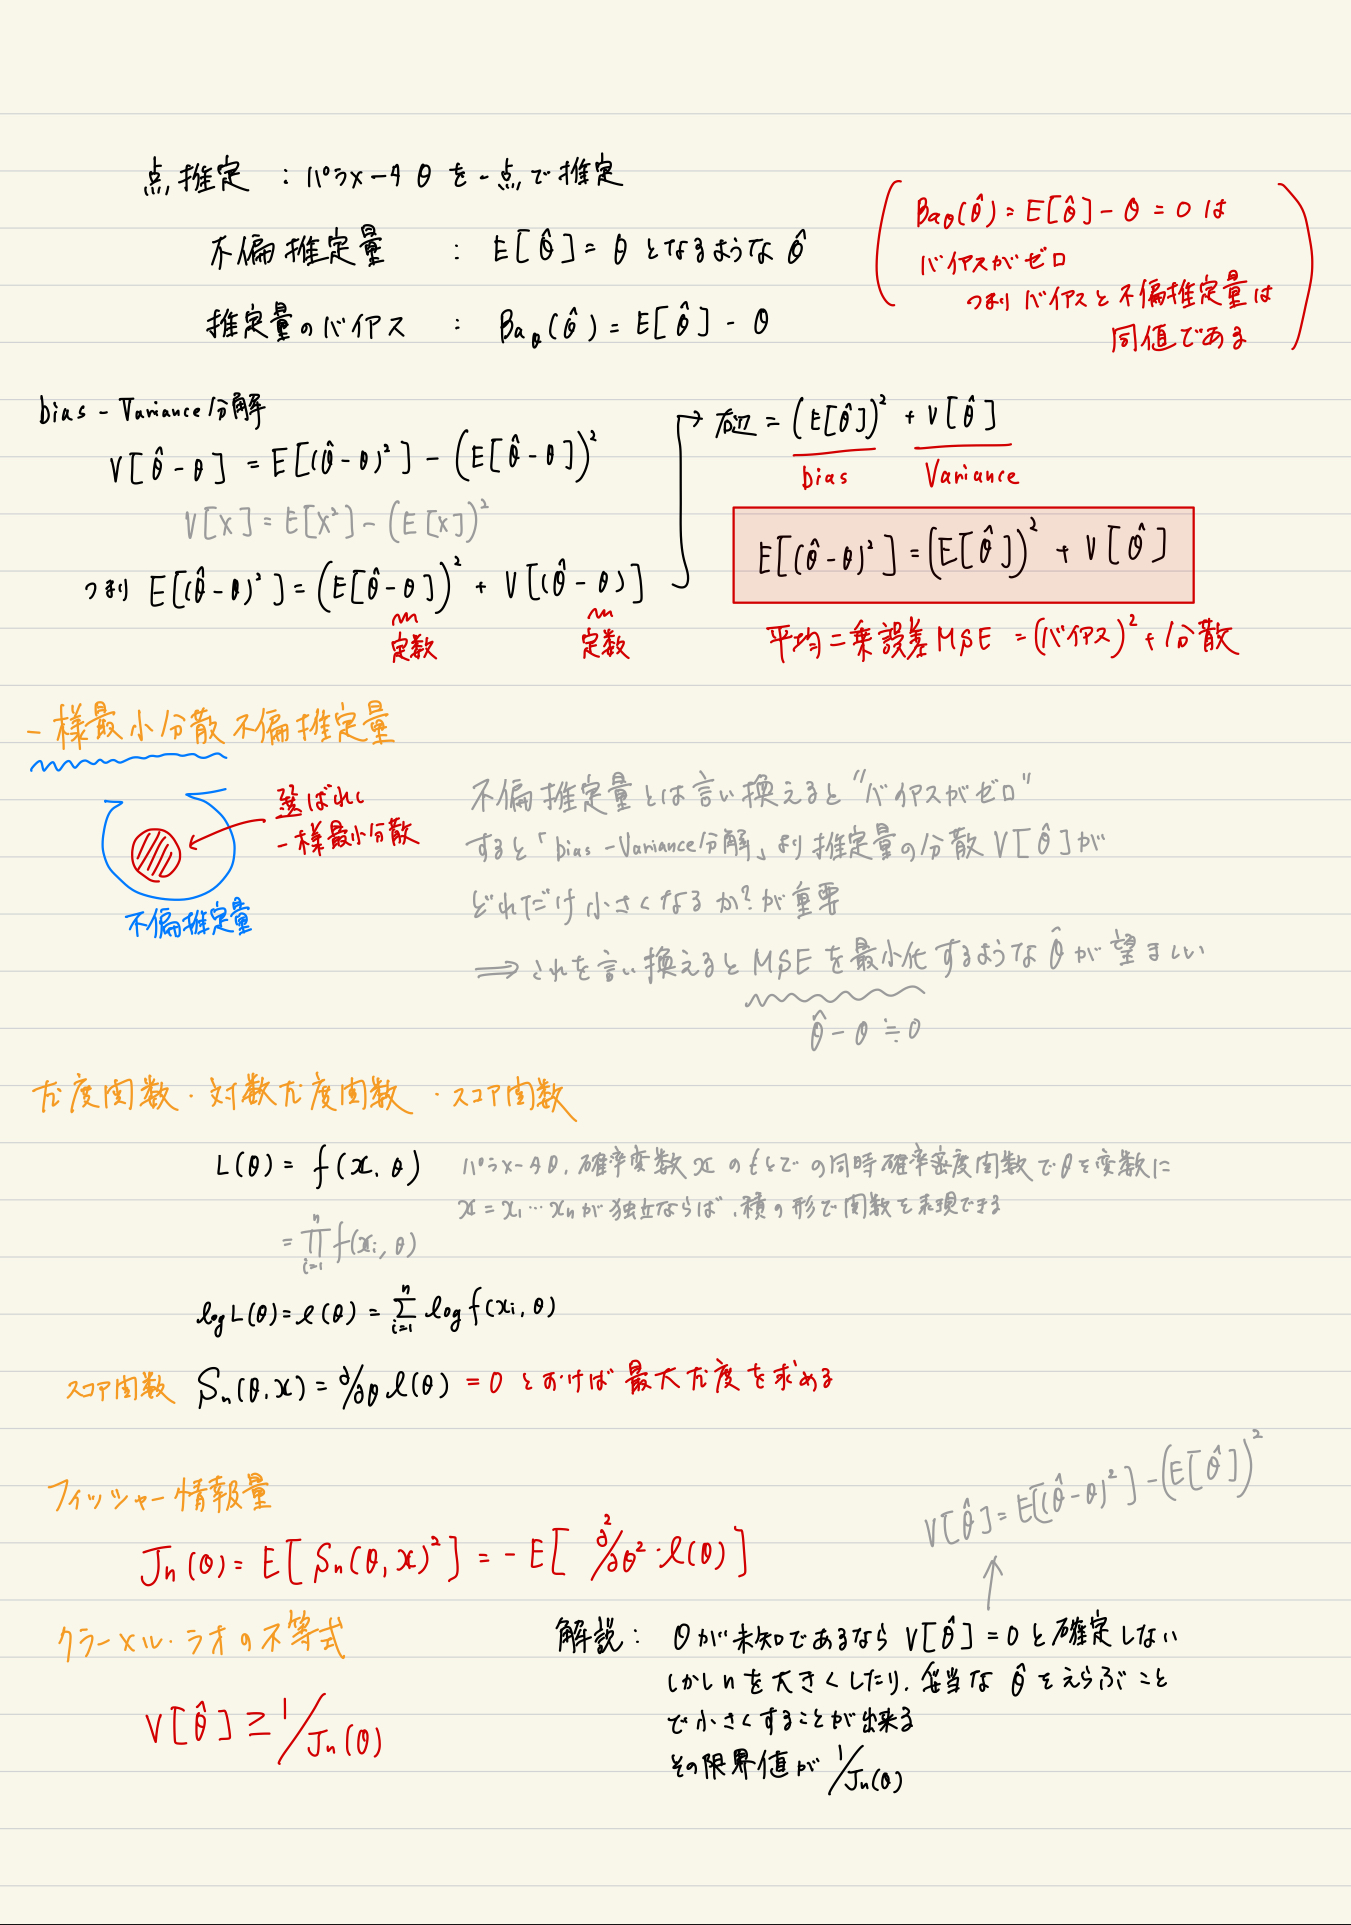 点推定 : パラメータ θ を一点で推定
不偏推定量 : E[θ̂] = θ となるような θ̂
推定量のバイアス : Ba_θ(θ̂) = E[θ̂] - θ
Ba_θ(θ̂) = E[θ̂] - θ = 0 は
バイアスがゼロ
つまり バイアスと不偏推定量は
同値である
bias - Variance分解
V[θ̂-θ] = E[(θ̂-θ)²] - (E[θ̂-θ])²
V[X] = E[X²] - (E[X])²
つまり E[(θ̂-θ)²] = (E[θ̂-θ])² + V[(θ̂-θ)]
定数 定数
→ 右辺 = (E[θ̂])² + V[θ̂]
bias Variance
E[(θ̂-θ)²] = (E[θ̂])² + V[θ̂]
平均二乗誤差MSE = (バイアス)² + 分散
一様最小分散不偏推定量
選ばれし
一様最小分散
不偏推定量
不偏推定量とは言い換えると"バイアスがゼロ"
すると「bias-Variance分解」より推定量の分散V[θ̂]が
どれだけ小さくなるか?が重要
⇒ これを言い換えるとMSEを最小化するようなθ̂が望ましい
θ̂-θ≒0
尤度関数・対数尤度関数・スコア関数
L(θ) = f(x, θ) パラメータθ, 確率変数xのもとでの同時確率密度関数でθを変数に
x = x₁…xₙが独立ならば, 積の形で関数を表現できる
= ∏ⁿᵢ₌₁ f(xᵢ, θ)
log L(θ) = ℓ(θ) = Σⁿᵢ₌₁ log f(xᵢ, θ)
スコア関数 Sₙ(θ, x) = ∂/∂θ ℓ(θ) = 0 とおけば最大尤度を求める
フィッシャー情報量
Jₙ(θ) = E[Sₙ(θ, x)²] = -E[∂²/∂θ²・ℓ(θ)]
V[θ̂] = E[(θ̂-θ)²] - (E[θ̂])²
クラーメル・ラオの不等式
V[θ̂] ≥ 1/Jₙ(θ)
解説: θが未知であるなら V[θ̂] = 0 と確定しない
しかしnを大きくしたり, 妥当な θ̂ をえらぶこと
で小さくすることが出来る
その限界値が 1/Jₙ(θ)